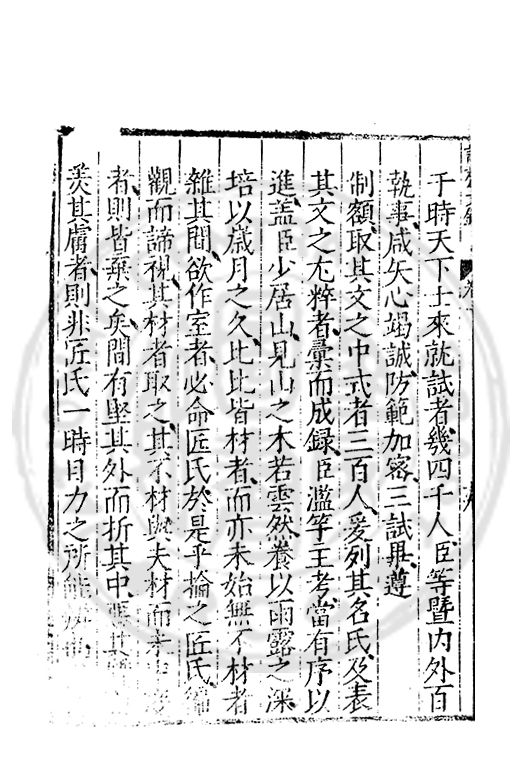 于時天下士來就試者幾四千人臣等暨内外百
執事咸矢心竭誠防範加密三試畢遵
制額取其文之中式者三百人爰列其名氏及表
其文之尤粹者彙而成録臣濫竽主考當有序以
進蓋臣少居山見山之木若雲然養以雨露之深
培以歲月之久比比皆材者而亦未始無不材者
雜其間欲作室者必命匠氏於是乎掄之匠氏
觀而諦視其材者取之其不材與夫材而
者則皆棄之矣間有堅其外而折其中
羨其膚者則非匠氏一時目力之所能